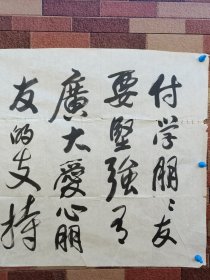 付学朋々友
要坚强有
廣大愛心朋
友的支持